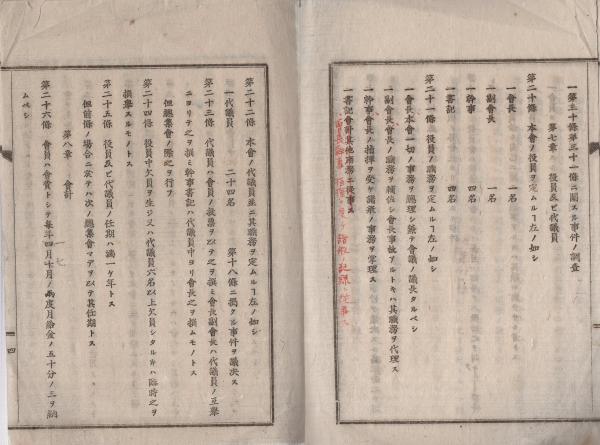 一第五十條第三十一條ニ關スル事件ノ調査
第七章 役員及ビ代議員
第二十條 本會ノ役員ヲ定ムルヿ左ノ如シ
一會長 一名
副會長 一名
一幹事 四名
一書記 四名
第二十一條 役員ノ職務ヲ定ムルヿ左ノ如シ
一會長本會一切ノ事務ヲ總理シ兼テ會議ノ議長タルベシ
一副會長會長ノ職務ヲ補佐シ會長事故アルトキハ其職務ヲ代理ス
一幹事會長ノ指揮ヲ受ケ諸般ノ事務ヲ掌理ス
一書記會計其他庶務ニ從事ス
第二十二條 本會ノ代議員並ニ其職務ヲ定ムルヿ左ノ如シ
一代議員 二十四名 第十八條ニ揭クル事件ヲ議决ス
第二十三條 代議員ハ會員ノ投票ヲ以テ之ヲ撰ミ會長副會長ハ代議員ノ互撰
ニヨリテ之ヲ撰ミ幹事書記ハ代議員中ヨリ會長之ヲ撰ムモノトス
但總集會ノ際之ヲ行フ
第二十四條 役員中欠員ヲ生ジ又ハ代議員六名以上欠員シタルキハ臨時之ヲ
撰擧スルモノトス
第二十五條 役員及ビ代議員ノ任期ハ滿一ケ年トス
但前條ノ場合ニ於テハ次ノ總集會マデヲ以テ其任期トス
第八章 會計
第二十六條 會員ハ會費トシテ每年四月十月ノ兩度月給金ノ五十分ノ三ヲ納
ムベシ
一七
四